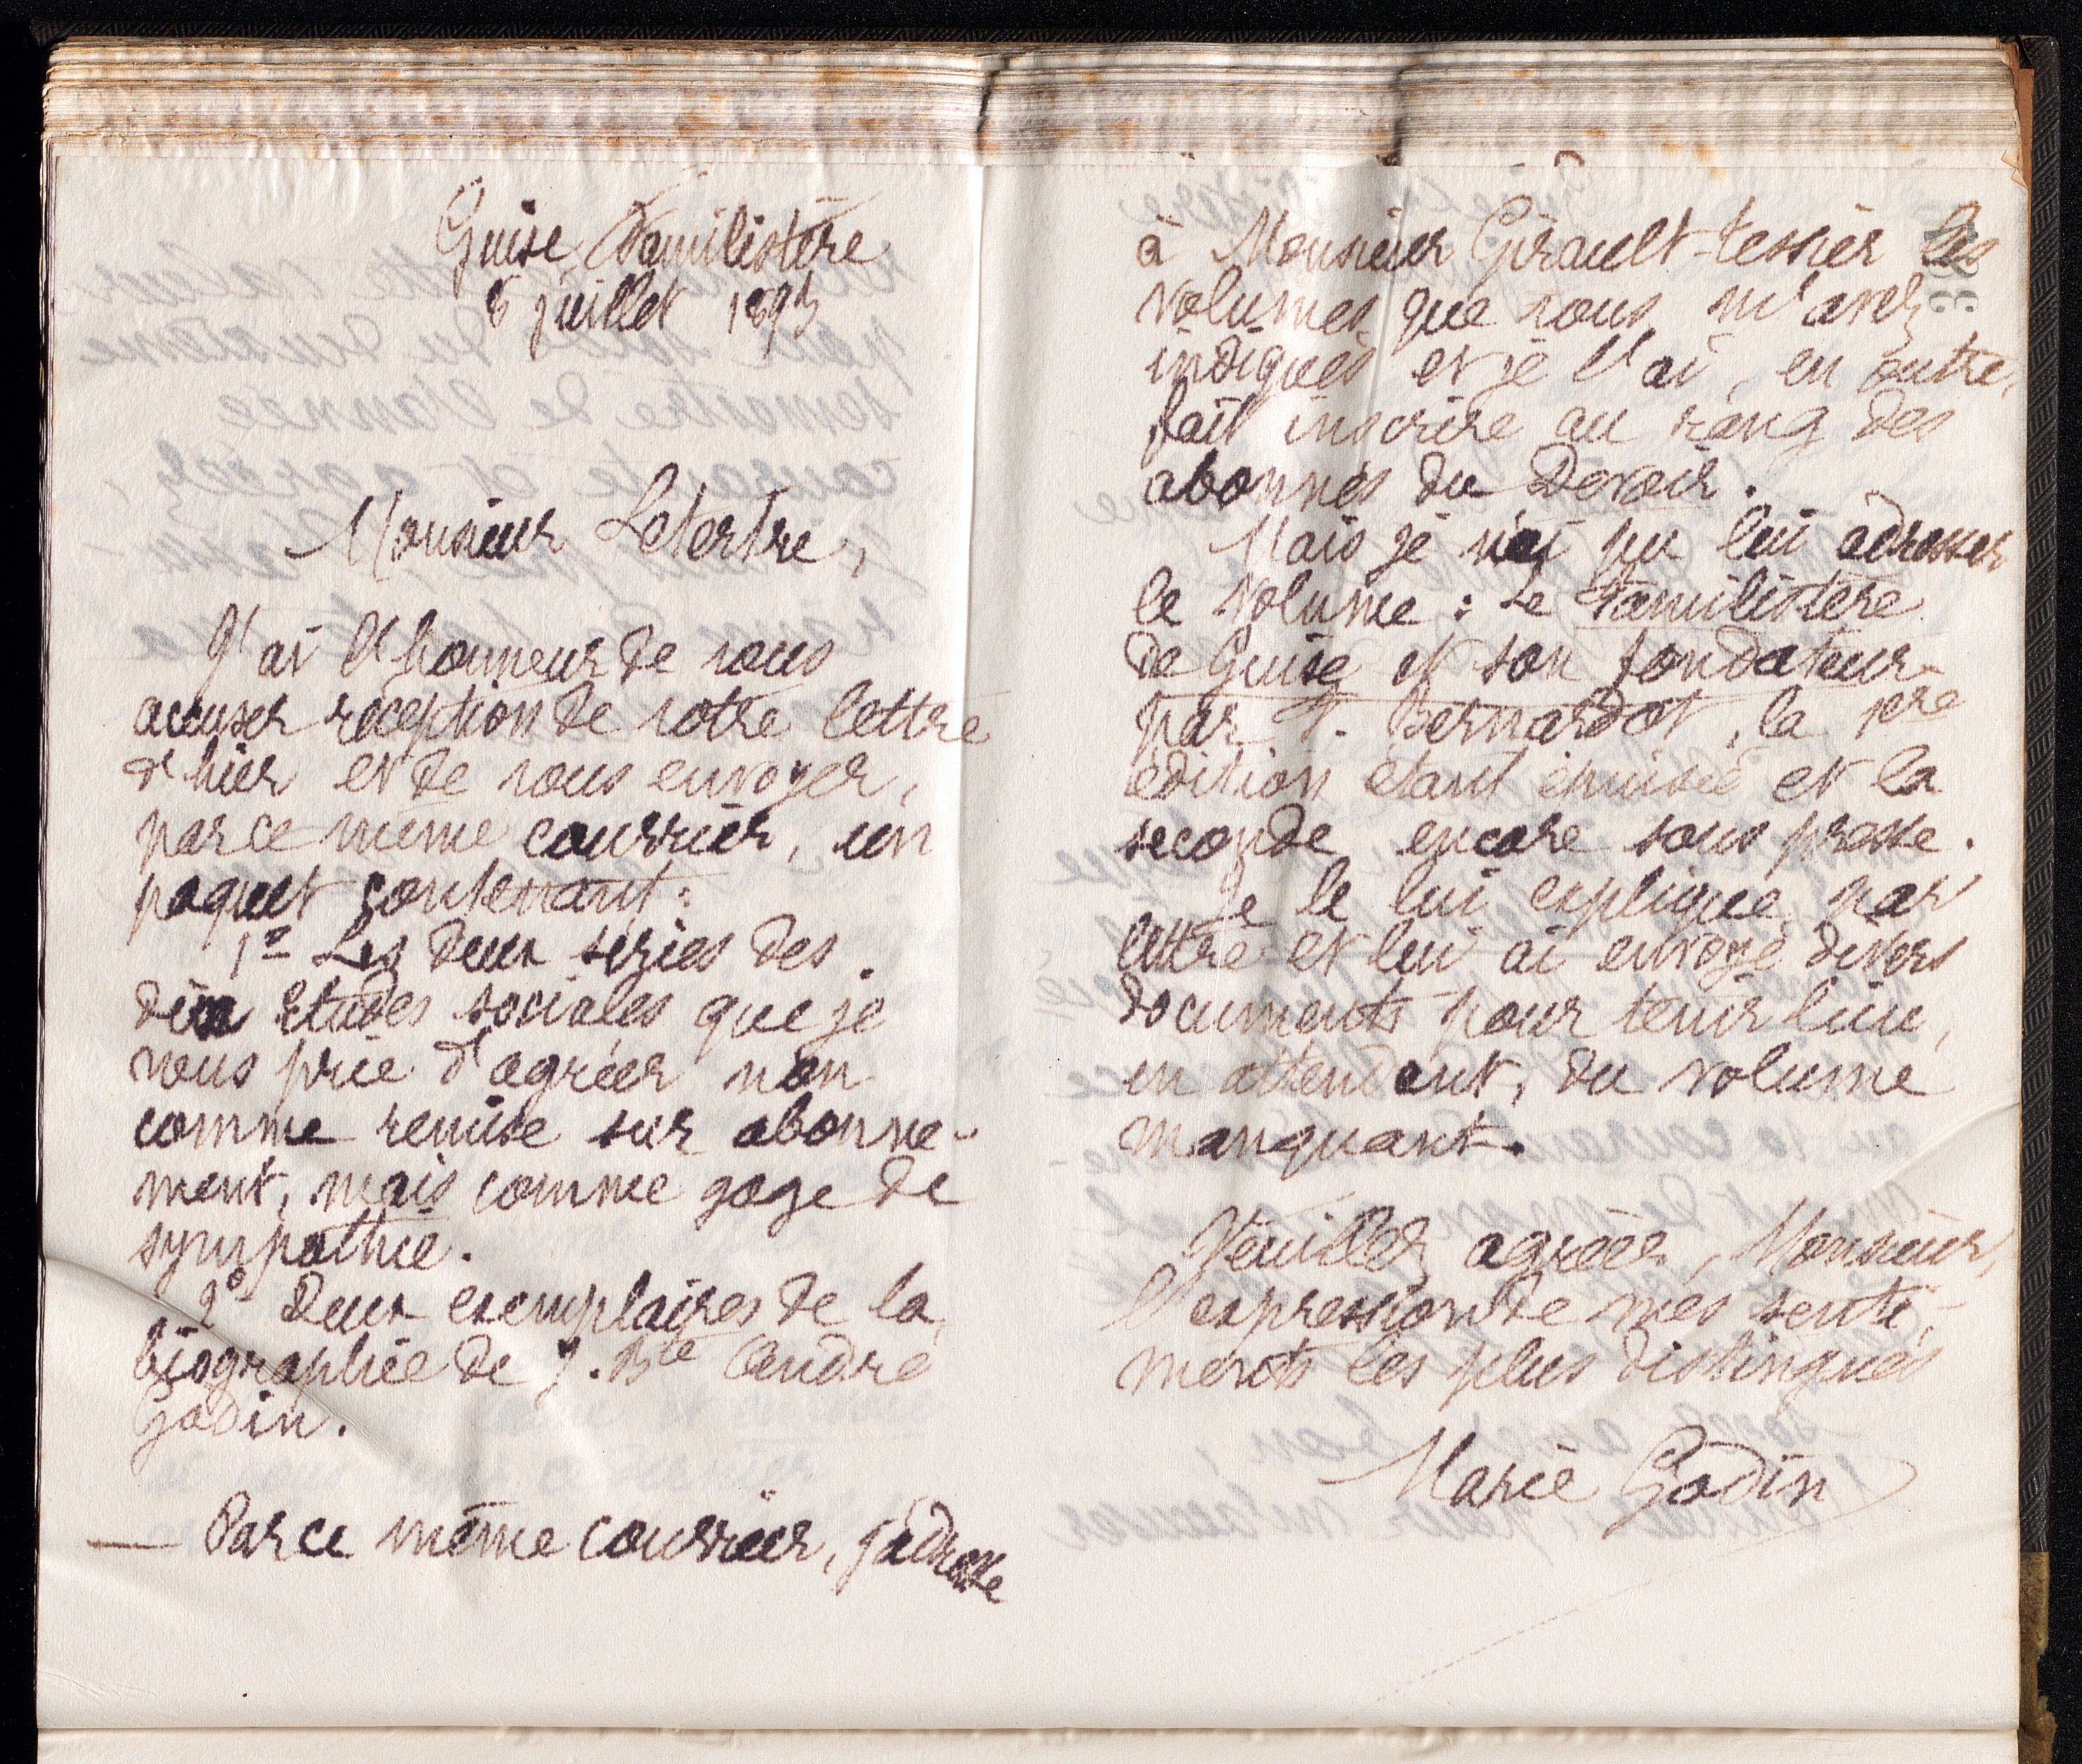 Guise, Familistère
juillet 1893
Monsieur Letertre,
J'ai l'honneur de vous
accuser réception de votre lettre
d'hier et de vous envoyer,
par ce même courrier, un
paquet contenant :
1º Les deux séries des
dix Etudes sociales que je
vous prie d'agréer non
comme remise sur abonne-
ment, mais comme gage de
sympathie.
2º Deux exemplaires de la
biographie de J. Bte André
Godin.
— Par ce même courrier, j'adresse
à Monsieur Girault-tessier les
volumes que vous m'avez
indiqués et je l'ai, en outre,
fait inscrire au rang des
abonnés du Devoir.
Mais je n'ai pu lui adresser
le volume : Le Familistère
de Guise et son fondateur
par F. Bernardot, la 1ère
édition étant épuisée et la
seconde encore sous presse.
Je le lui explique par
lettre et lui ai envoyé divers
documents pour tenir lieu,
en attendant, du volume
manquant.
Veuillez agréer, Monsieur,
l'expression de mes senti-
ments les plus distingués
Marie Godin